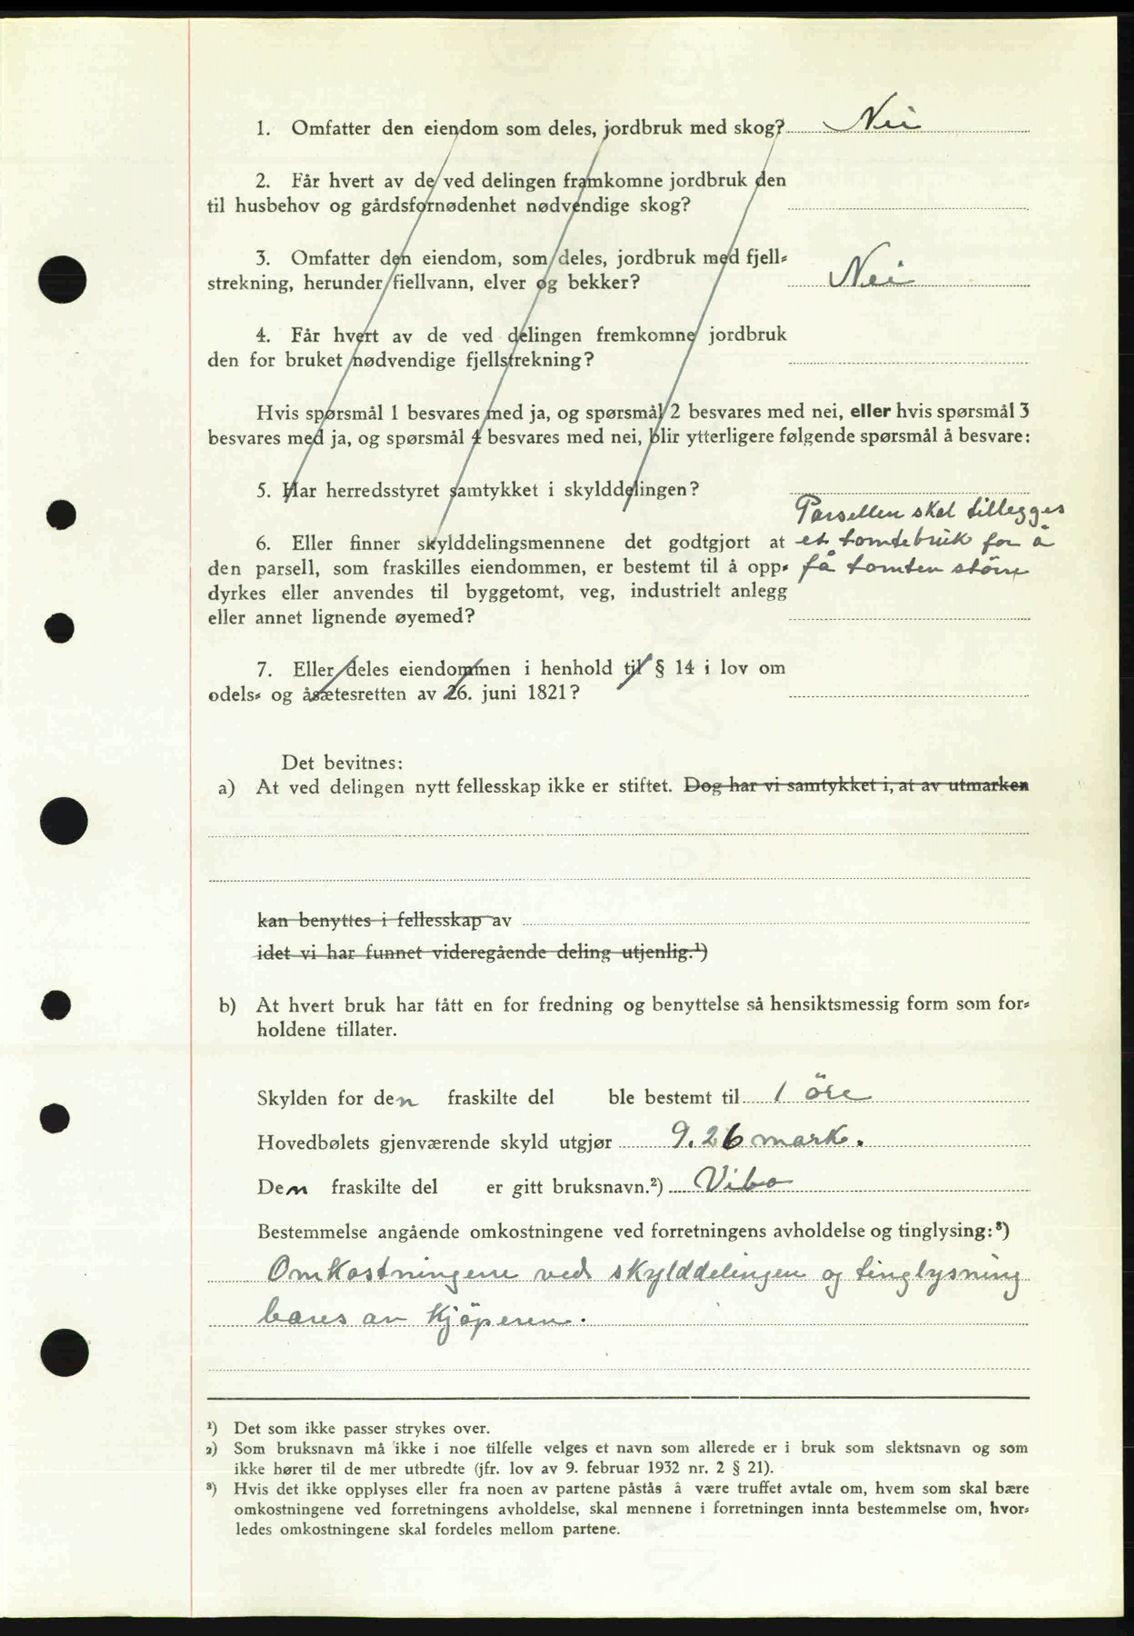 1. Omfatter den eiendom som deles, jordbruk med skog? Nei
2. Får hvert av de ved delingen framkomne jordbruk den
til husbehov og gårdsfornødenhet nødvendige skog?
3. Omfatter den eiendom, som deles, jordbruk med fjell-
strekning, herunder fiellvann, elver og bekker? Nei
4. Får hvert av de ved delingen fremkomne jordbruk
den for bruket nødvendige fjellstrekning?
Hvis spørsmål 1 besvares med ja, og spørsmål 2 besvares med nei, eller hvis spørsmål 3
besvares med ja, og spørsmål 4 besvares med nei, blir ytterligere følgende spørsmål å besvare:
5. Har herredsstyret samtykket i skylddelingen?
Parsellen skal tillegges
6. Eller finner skylddelingsmennene det godtgjort at et tomtebruk for å
den parsell, som fraskilles eiendommen, er bestemt til å opp- få tomten større
dyrkes eller anvendes til byggetomt, veg, industrielt anlegg
eller annet lignende øyemed?
7. Eller deles eiendommen i henhold til § 14 i lov om
odels- og åsætesretten av 26. juni 1821?
Det bevitnes:
a) At ved delingen nytt fellesskap ikke er stiftet. Dog har vi samtykket i, at av utmarken
kan benyttes i fellesskap av
idet vi har funnet videregående deling utjenlig.¹)
b) At hvert bruk har fått en for fredning og benyttelse så hensiktsmessig form som for-
holdene tillater.
Skylden for den fraskilte del ble bestemt til 1 öre
Hovedbølets gjenværende skyld utgjør 9.26 mark.
Den fraskilte del er gitt bruksnavn.²) Vibo
Bestemmelse angående omkostningene ved forretningens avholdelse og tinglysing:³)
Omkostningene ved skylddelingen og tinglysning
bæres av kjöperen.
¹) Det som ikke passer strykes over.
²) Som bruksnavn må ikke i noe tilfelle velges et navn som allerede er i bruk som slektsnavn og som
ikke hører til de mer utbredte (jfr. lov av 9. februar 1932 nr. 2 § 21).
³) Hvis det ikke opplyses eller fra noen av partene påstås å være truffet avtale om, hvem som skal bære
omkostningene ved forretningens avholdelse, skal mennene i forretningen innta bestemmelse om, hvor-
ledes omkostningene skal fordeles mellom partene.